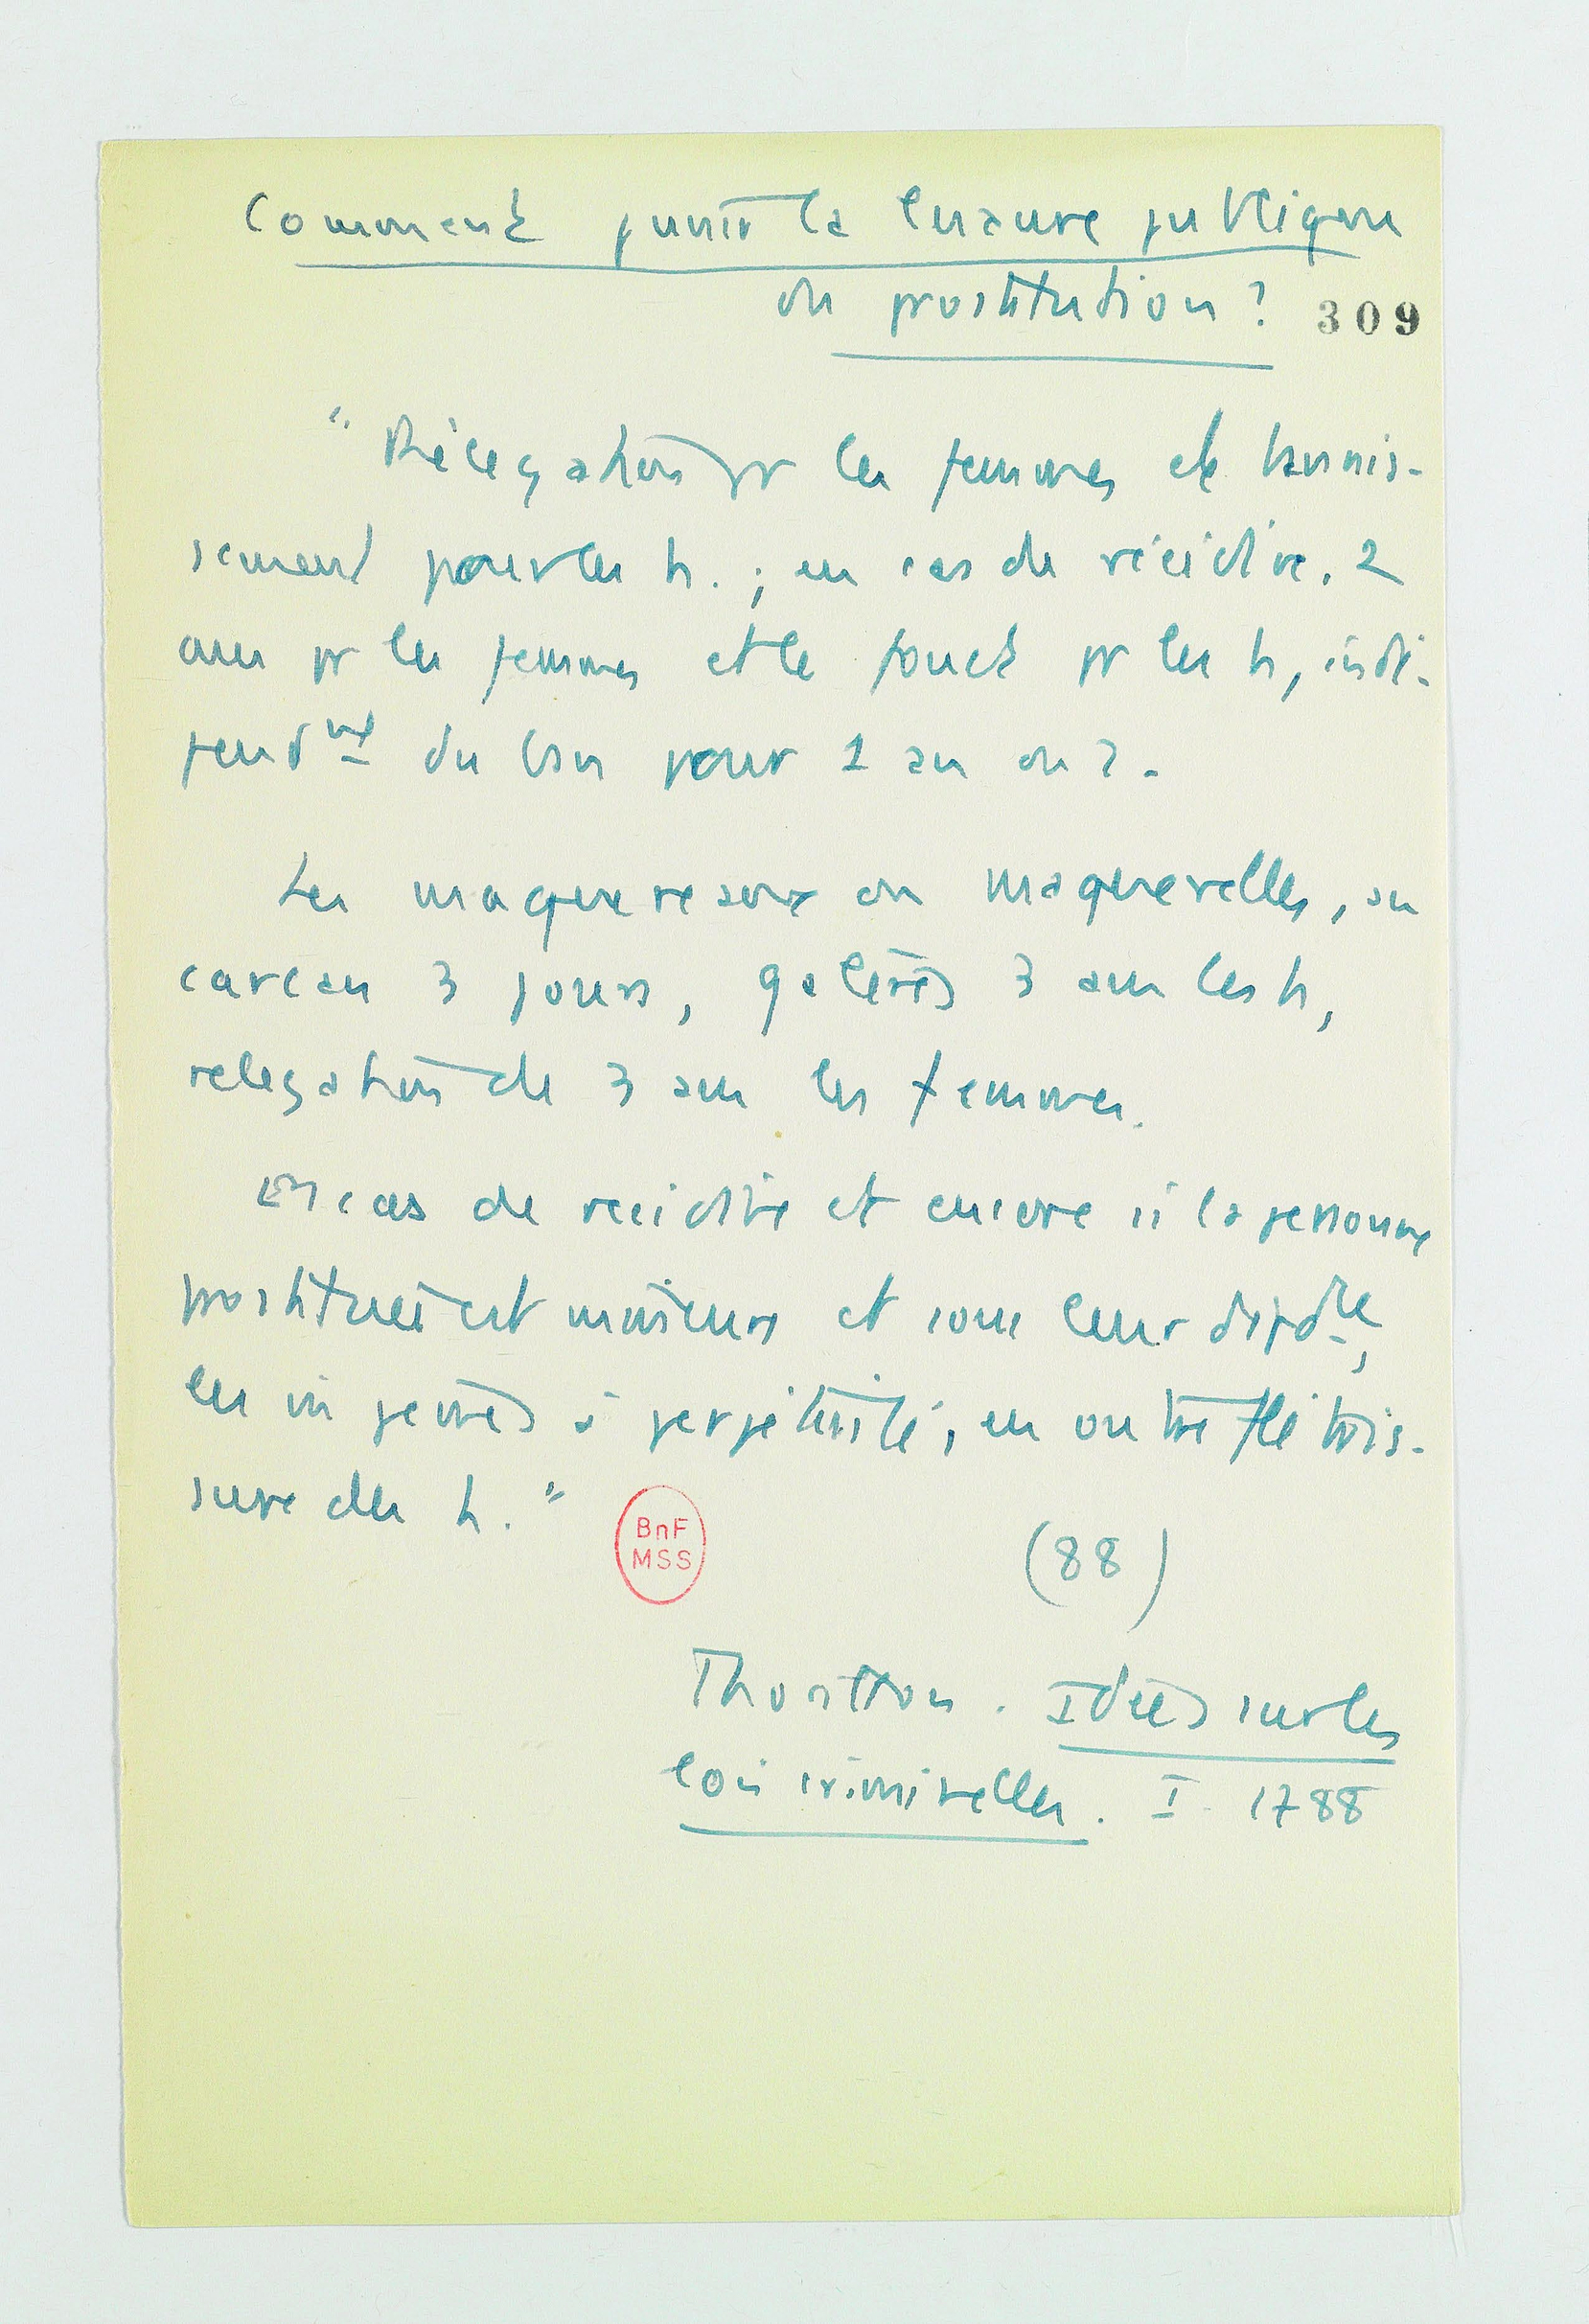 Comment punir la luxure publique
ou prostitution ?
309
"Rélégation pr les femmes et bannis-
sement pour les h. ; en cas de récidive, 2
ans pr les femmes et le fouet pr les h, indé-
pendmt du ban pour 1 an ou 2.
Les maquereaux ou maquerelles, au
carcan 3 jours, galères 3 ans les h,
relegation de 3 ans les femmes.
En cas de recidive et encore si la personne
prostituée est mineure et sous leur dépdce,
les  peines à perpétuité, en outre flétris-
sure des h."
BnF
MSS
(88)
Thorillon. Idées sur les
lois criminelles. I. 1788